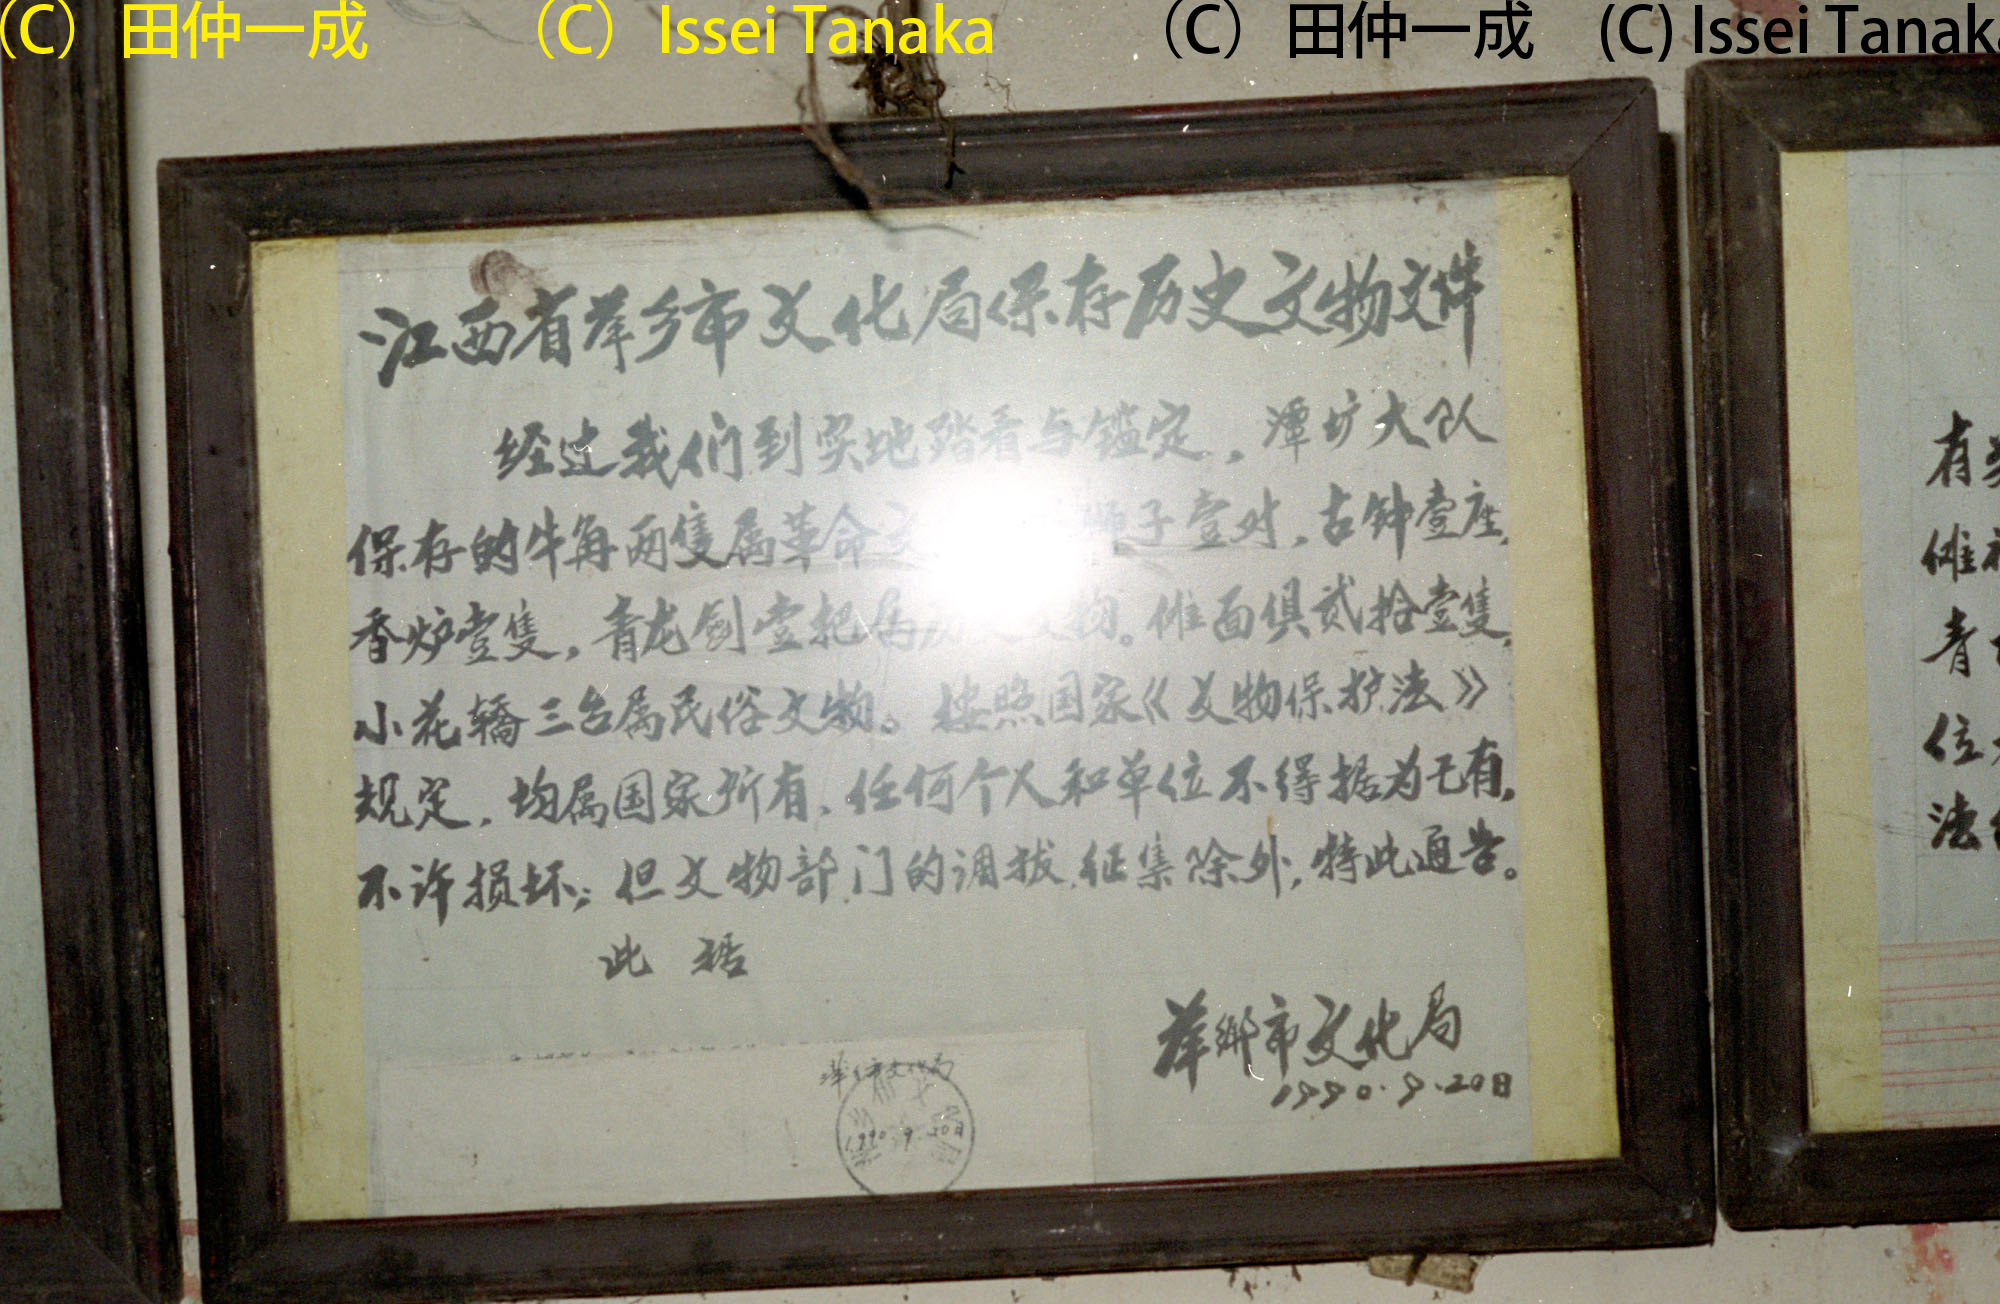 (C) 田仲一成 (C) Issei Tanaka (C) 田仲一成 (C) Issei Tanaka
江西省萍乡市文化局保存历史文物文件
经过我们到实地踏看与鑑定，潭圹大队
保存的牛角两隻属革命文 狮子壹对，古钟壹座，
香炉壹隻，青龙剑壹把属历 文物。傩面俱贰拾壹隻，
小花轎三台属民俗文物。按照国家《文物保护法》
规定，均属国家所有，任何个人和单位不得据为己有，
不许损坏；但文物部门的调拔，征集除外，特此通告。
此据
萍乡市文化局
1990.9.20日
萍乡市文化局
1990.9.20日
有
傩
青
位
法